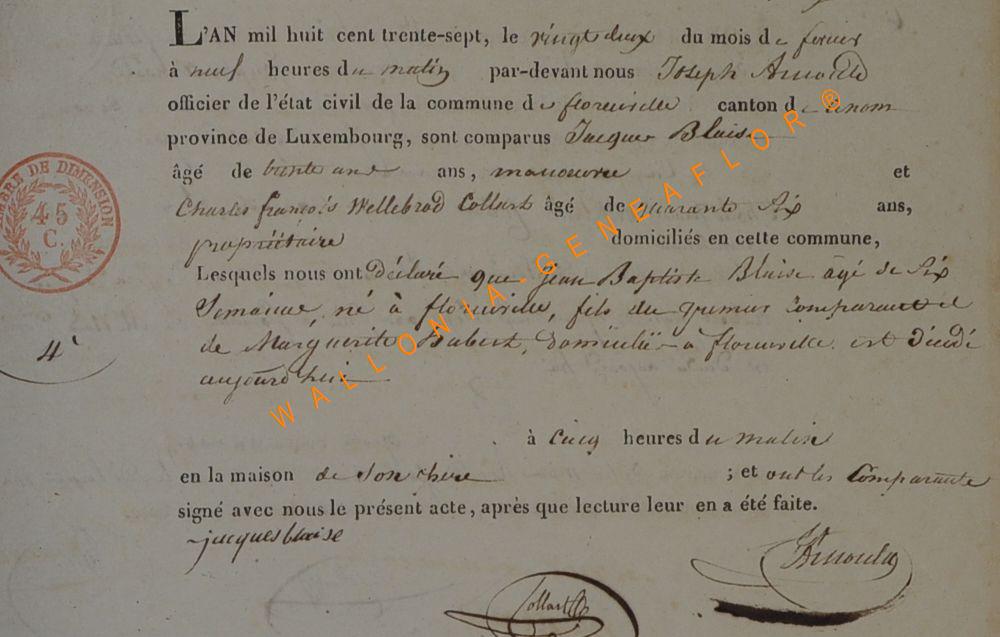 L'AN mil huit cent trente-sept, le vingt deux du mois de fevrier
à neuf heures du matin par-devant nous Joseph Arnould
officier de l'état civil de la commune de florenville canton d
province de Luxembourg, sont comparus Jacques Blaise
âgé de trente ans, manoeuvre et
Charles françois Wellebrod Collart âgé de quarante Six ans,
propriétaire domiciliés en cette commune,
Lesquels nous ont déclaré que Jean Baptiste Blaise âgé de Six
Semaines, né à florenville, fils du premier Comparant et
de Marguerite Hubert, domiciliés à florenville est décédé
aujourd'hui
à Cinq heures du matin
en la maison de Son ; et ont les Comparants
signé avec nous le présent acte, après que lecture leur en a été faite.
jacques blaise
JArnould
Collart
TIMBRE DE DIMENSION
45
C.
4
WALLONIA-GENEAFLOR®